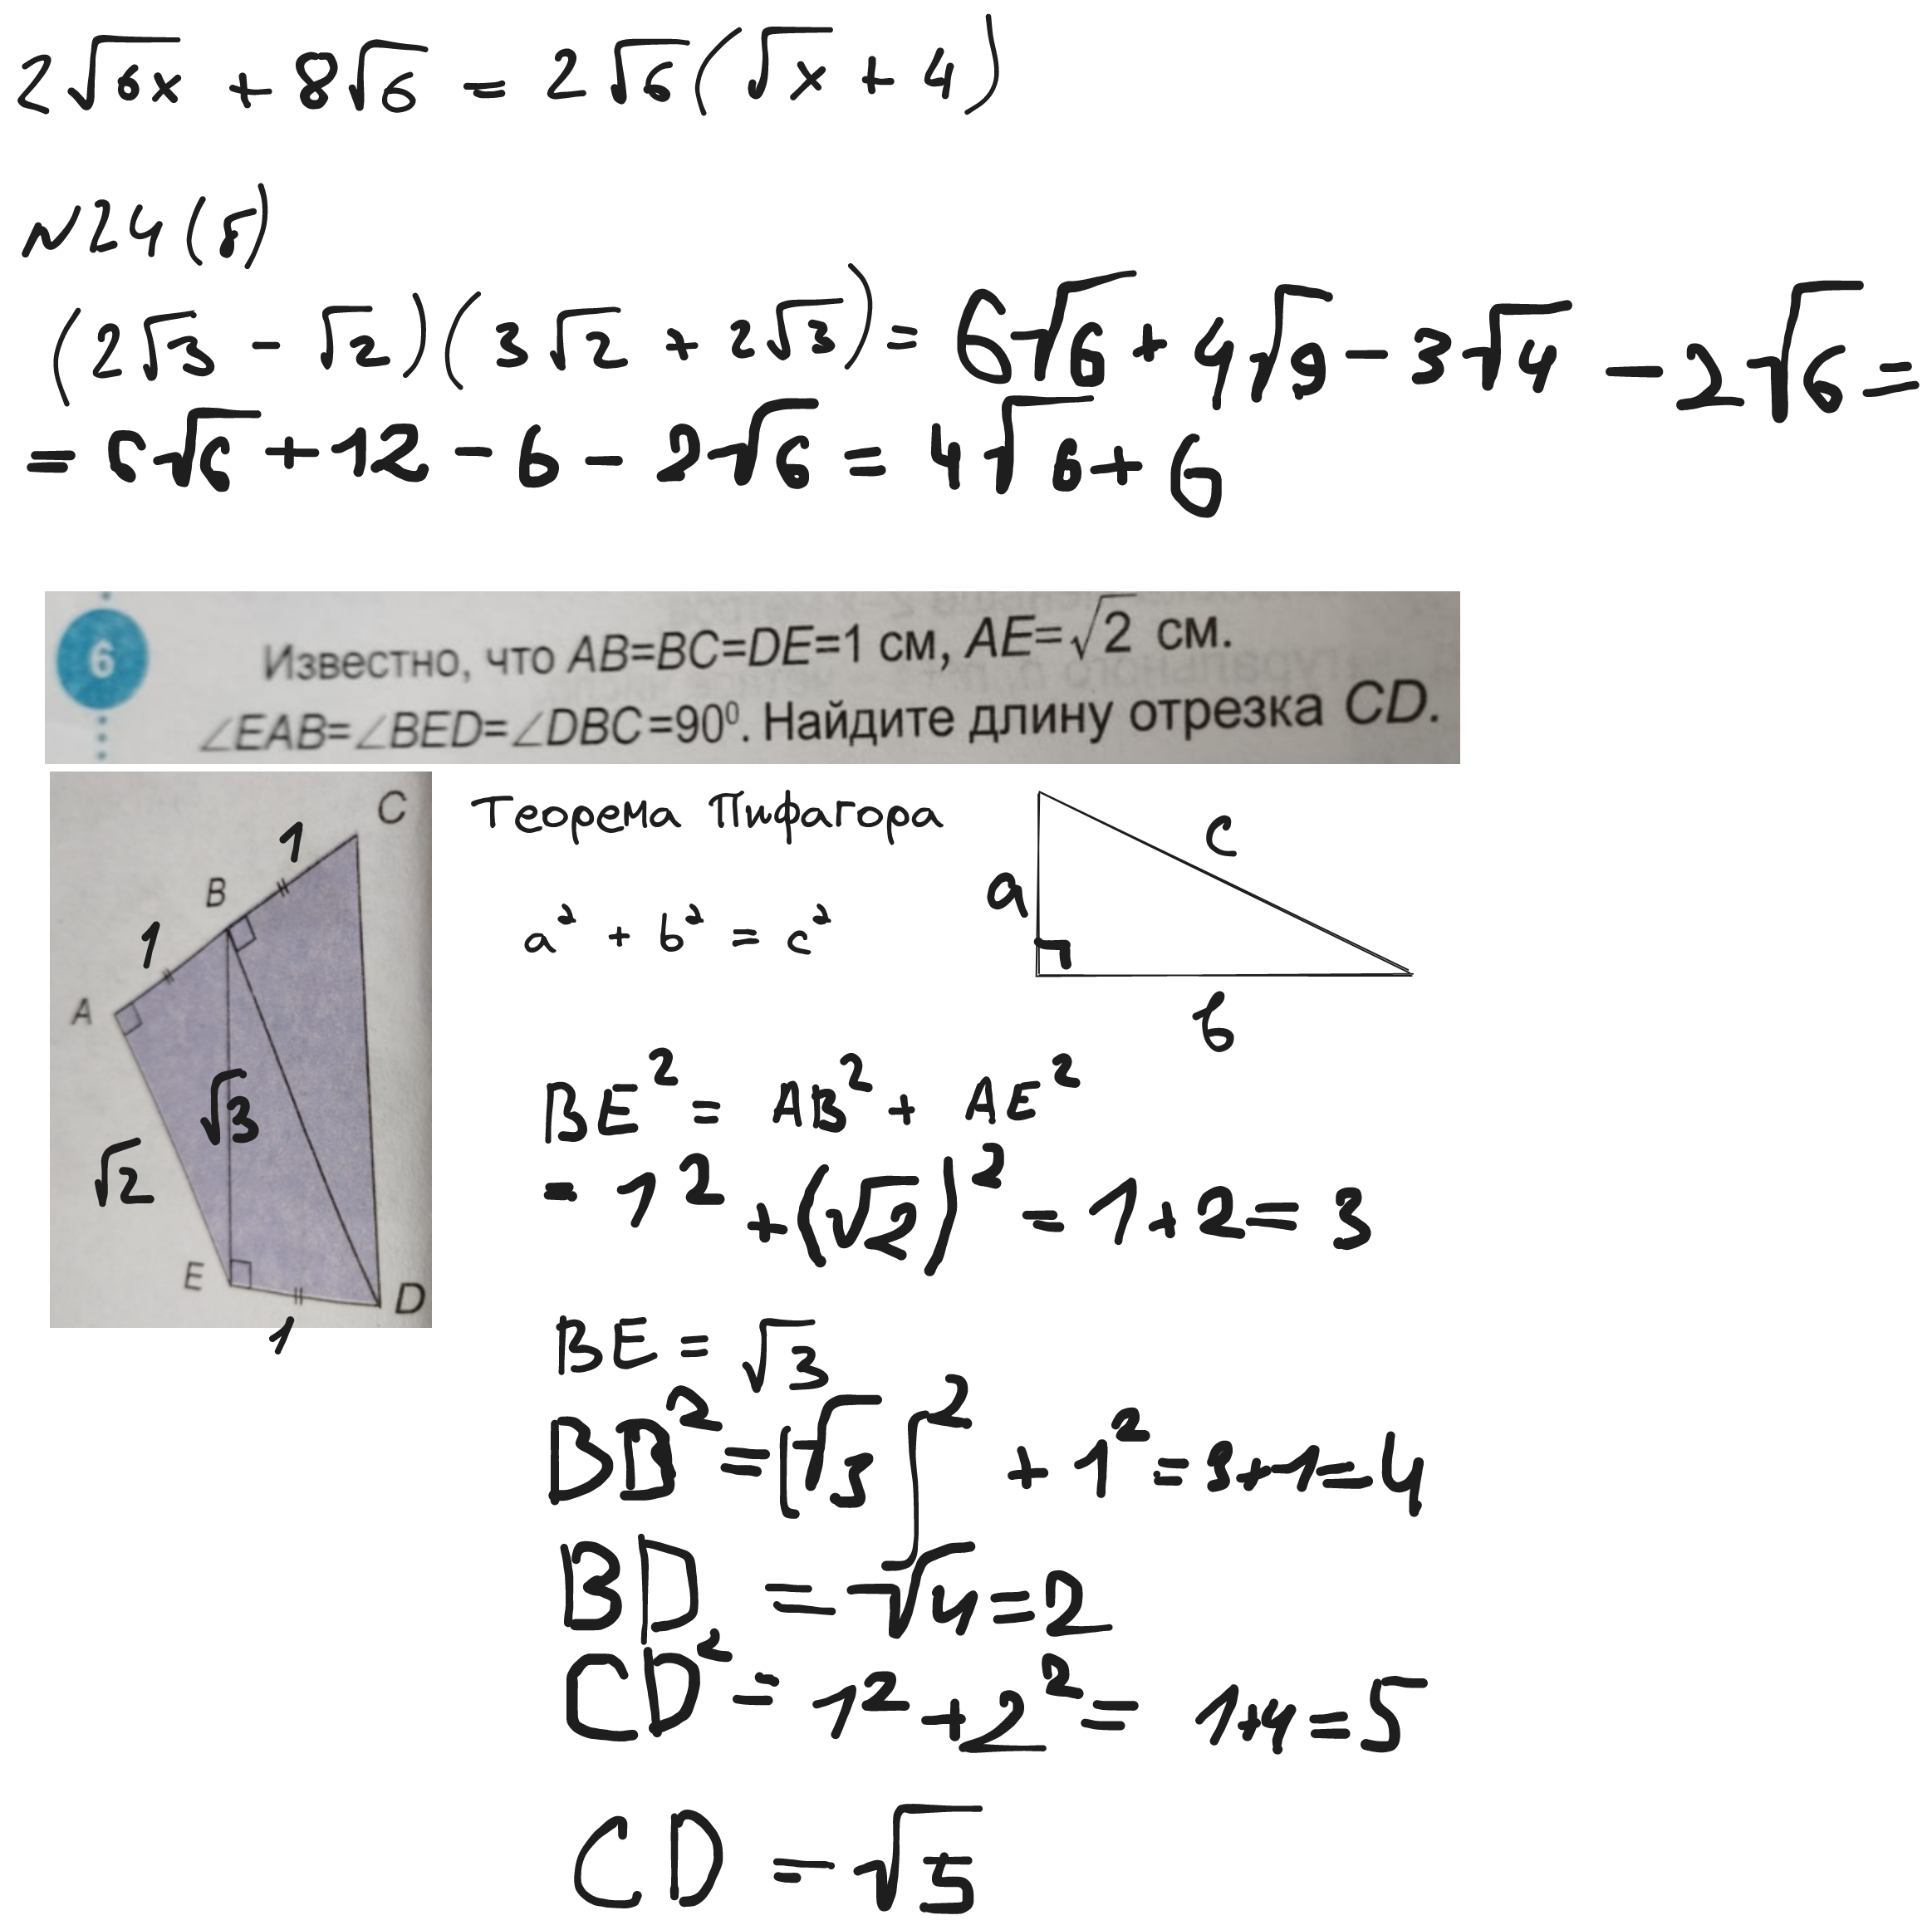 2√6x + 8√6 = 2√6(√x + 4)
N24(б)
(2√3 - √2)(3√2 + 2√3) = 6√6 + 4√9 - 3√4 - 2√6 =
= 6√6 + 12 - 6 - 2√6 = 4√6 + 6
6
Известно, что AB=BC=DE=1 см, AE=√2 см.
∠EAB=∠BED=∠DBC=90⁰. Найдите длину отрезка CD.
C
1
B
1
A
√3
√2
E
D
1
Теорема Пифагора
a² + b² = c²
c
a
b
BE² = AB² + AE²
= 1² + (√2)² = 1 + 2 = 3
BE = √3
BD² = (√3)² + 1² = 3+1=4
BD = √4 = 2
CD² = 1² + 2² = 1+4=5
CD = √5